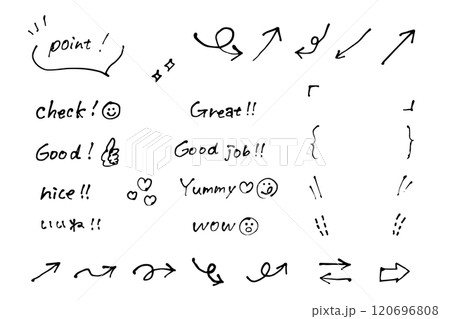 point!
check!
Great!!
Good!
Good job!!
nice!!
Yummy♡
いいね!!
wow
PIXTA
120696808